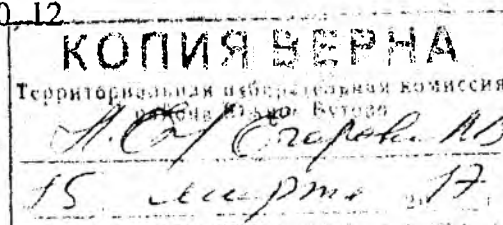 0 12
КОПИЯ ВЕРНА
Территориальная избирательная комиссия
района Южное Бутово
15 марта 2017